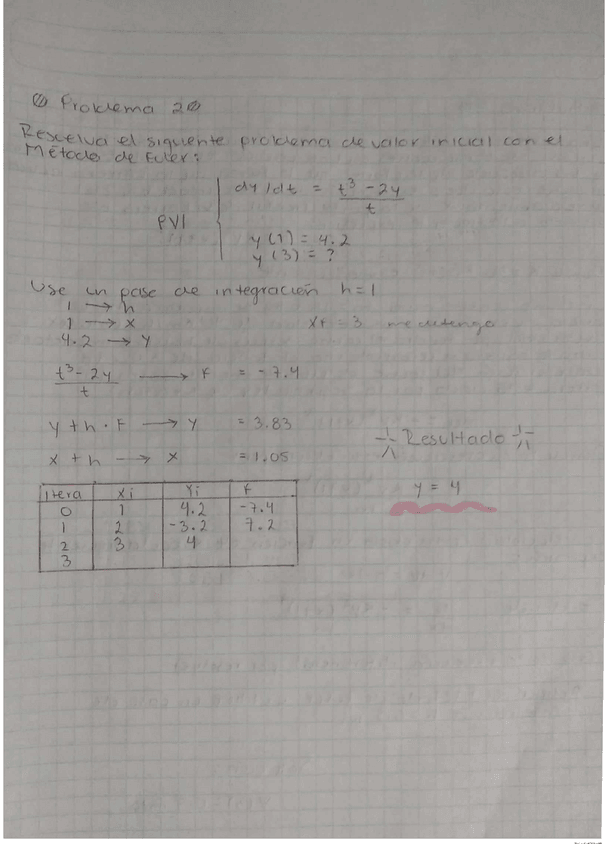 Problema 2
Resuelva el siguiente problema de valor inicial con el
Método de Euler:
PVI
dy/dt = t³ - 2y / t
y(1) = 4.2
y(3) = ?
Use un paso de integración h=1
1 → h
1 → x
4.2 → y
xf = 3 me detengo
t³ - 2y / t → F = -7.4
y + h · F → y = 3.83
x + h → x = 1.05
Resultado
y = 4
itera Xi Yi F
0 1 4.2 -7.4
1 2 -3.2 7.2
2 3 4
3